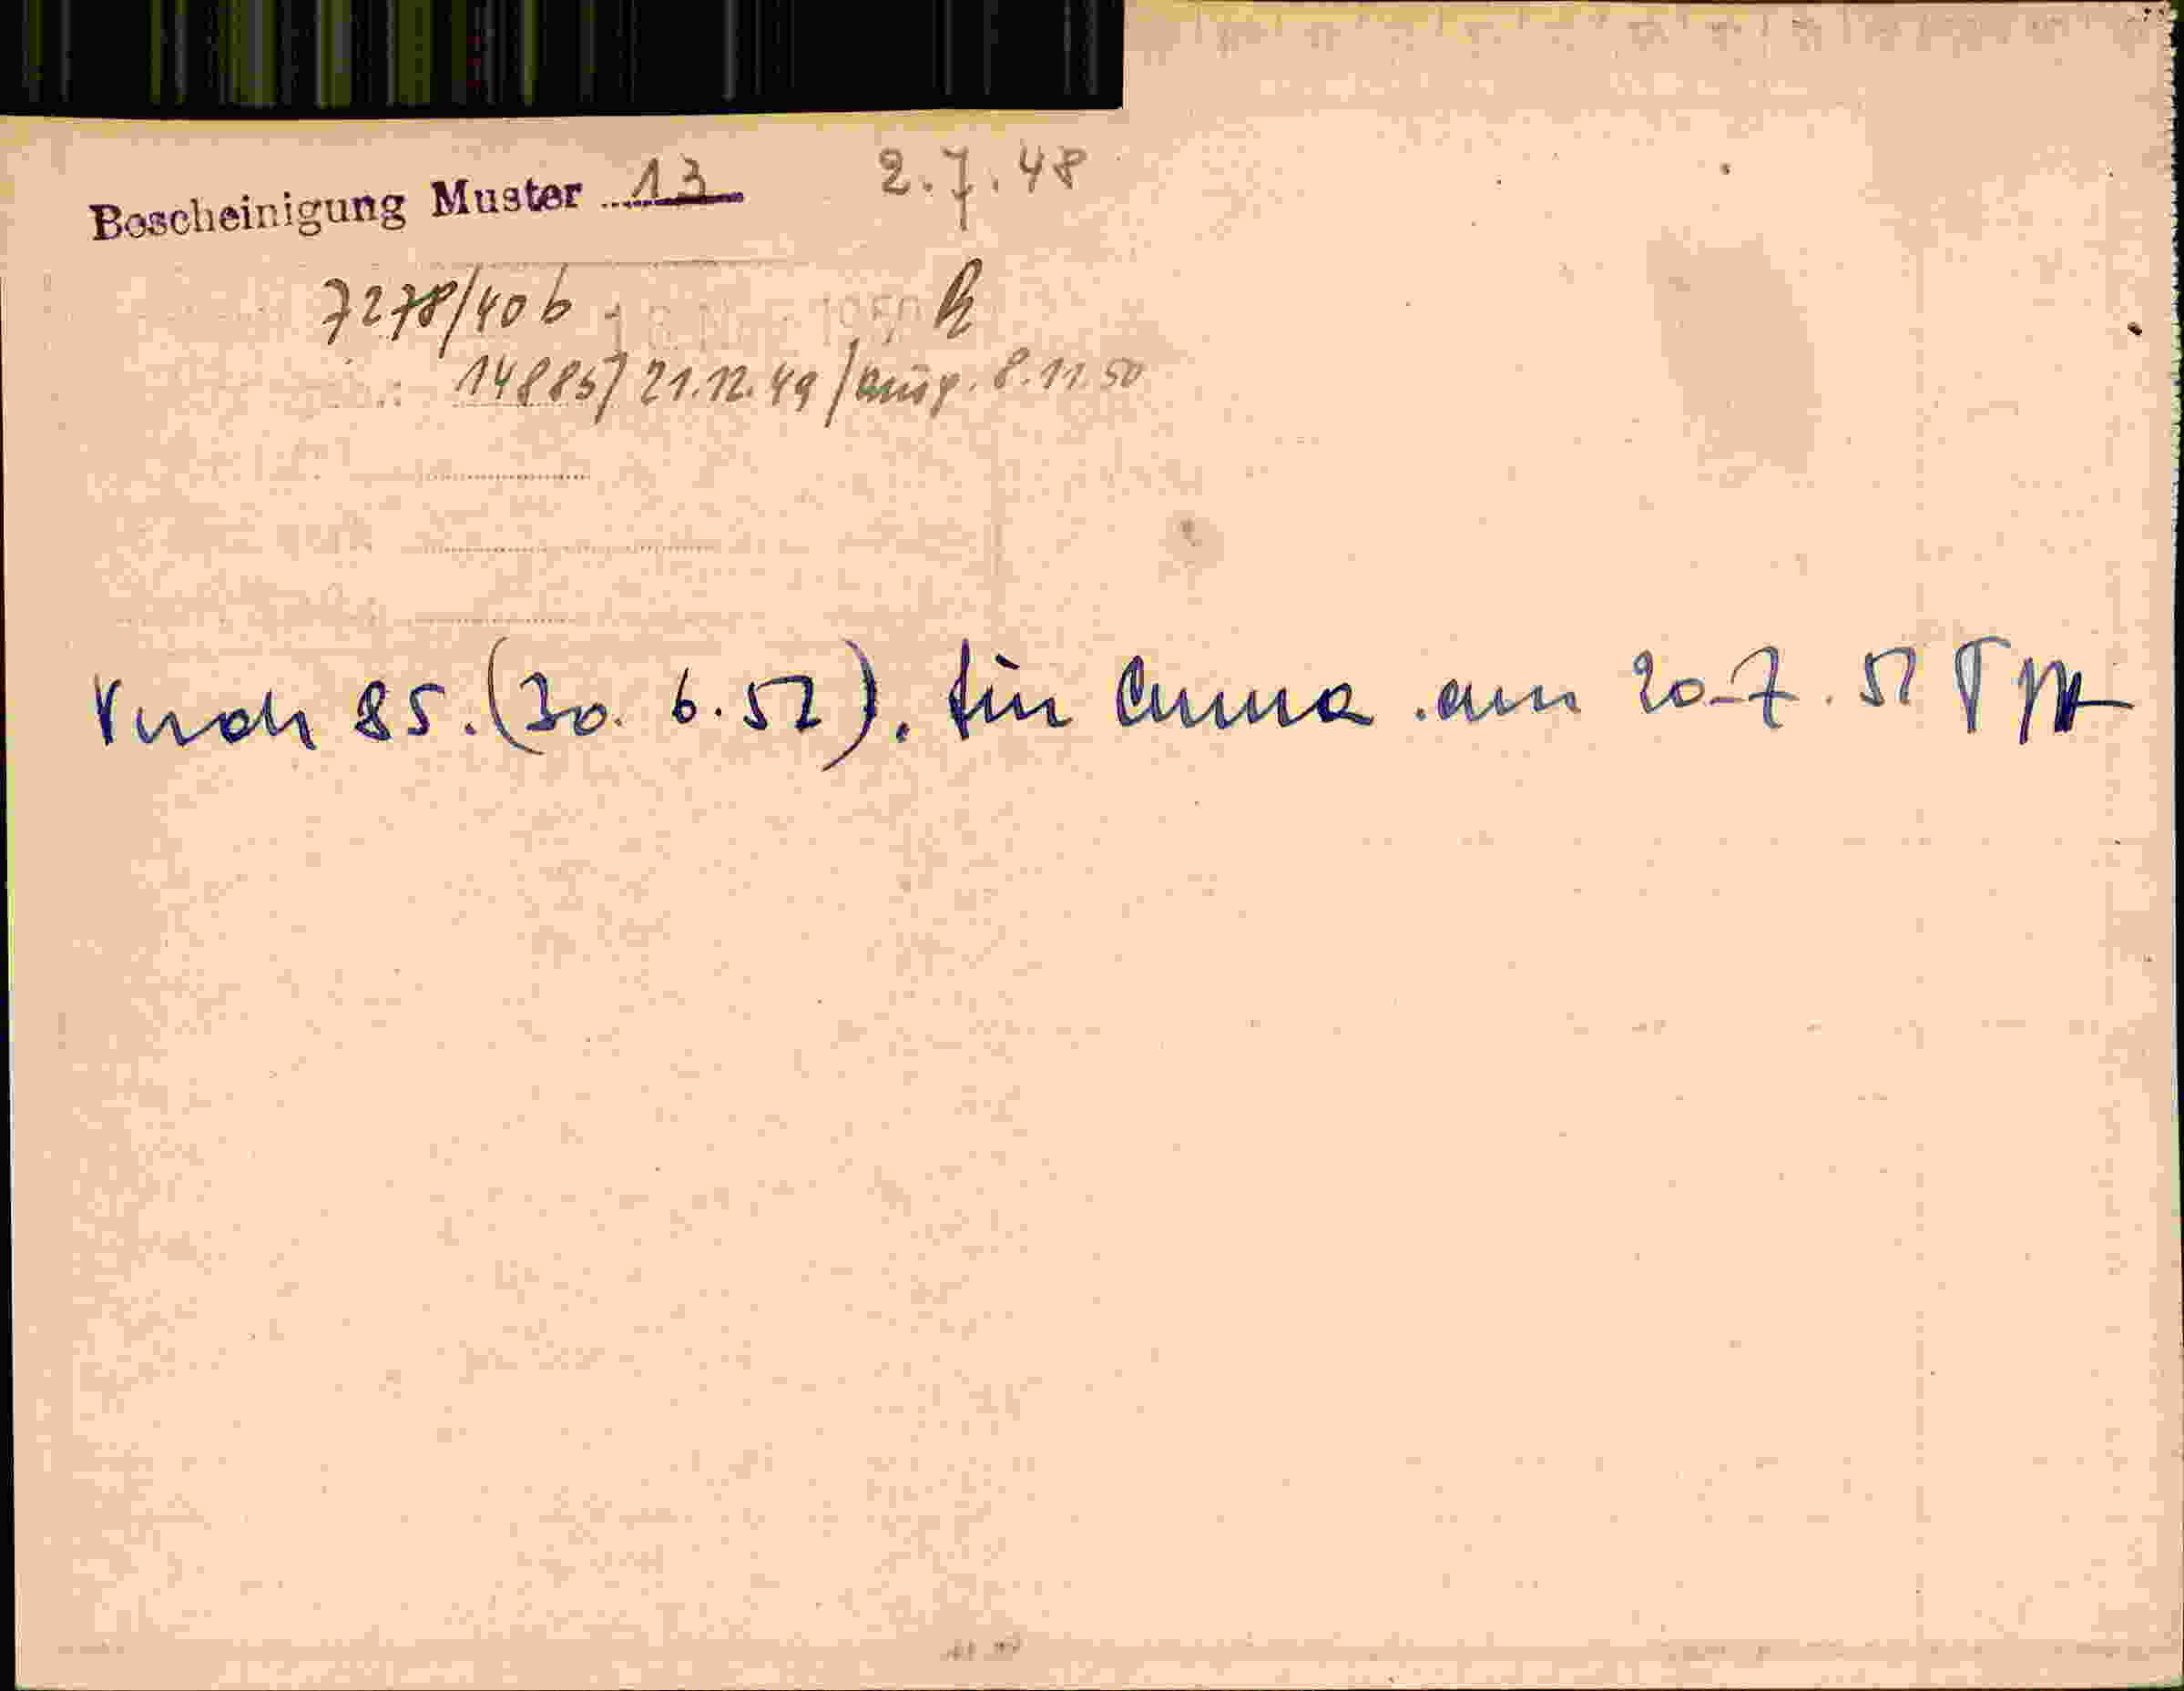 Bescheinigung Muster 13 2.7.48
7278/40b
14885/21.12.49/ausg. 8.11.50
85. (30. 6. 52). für Anna am 20.7.52